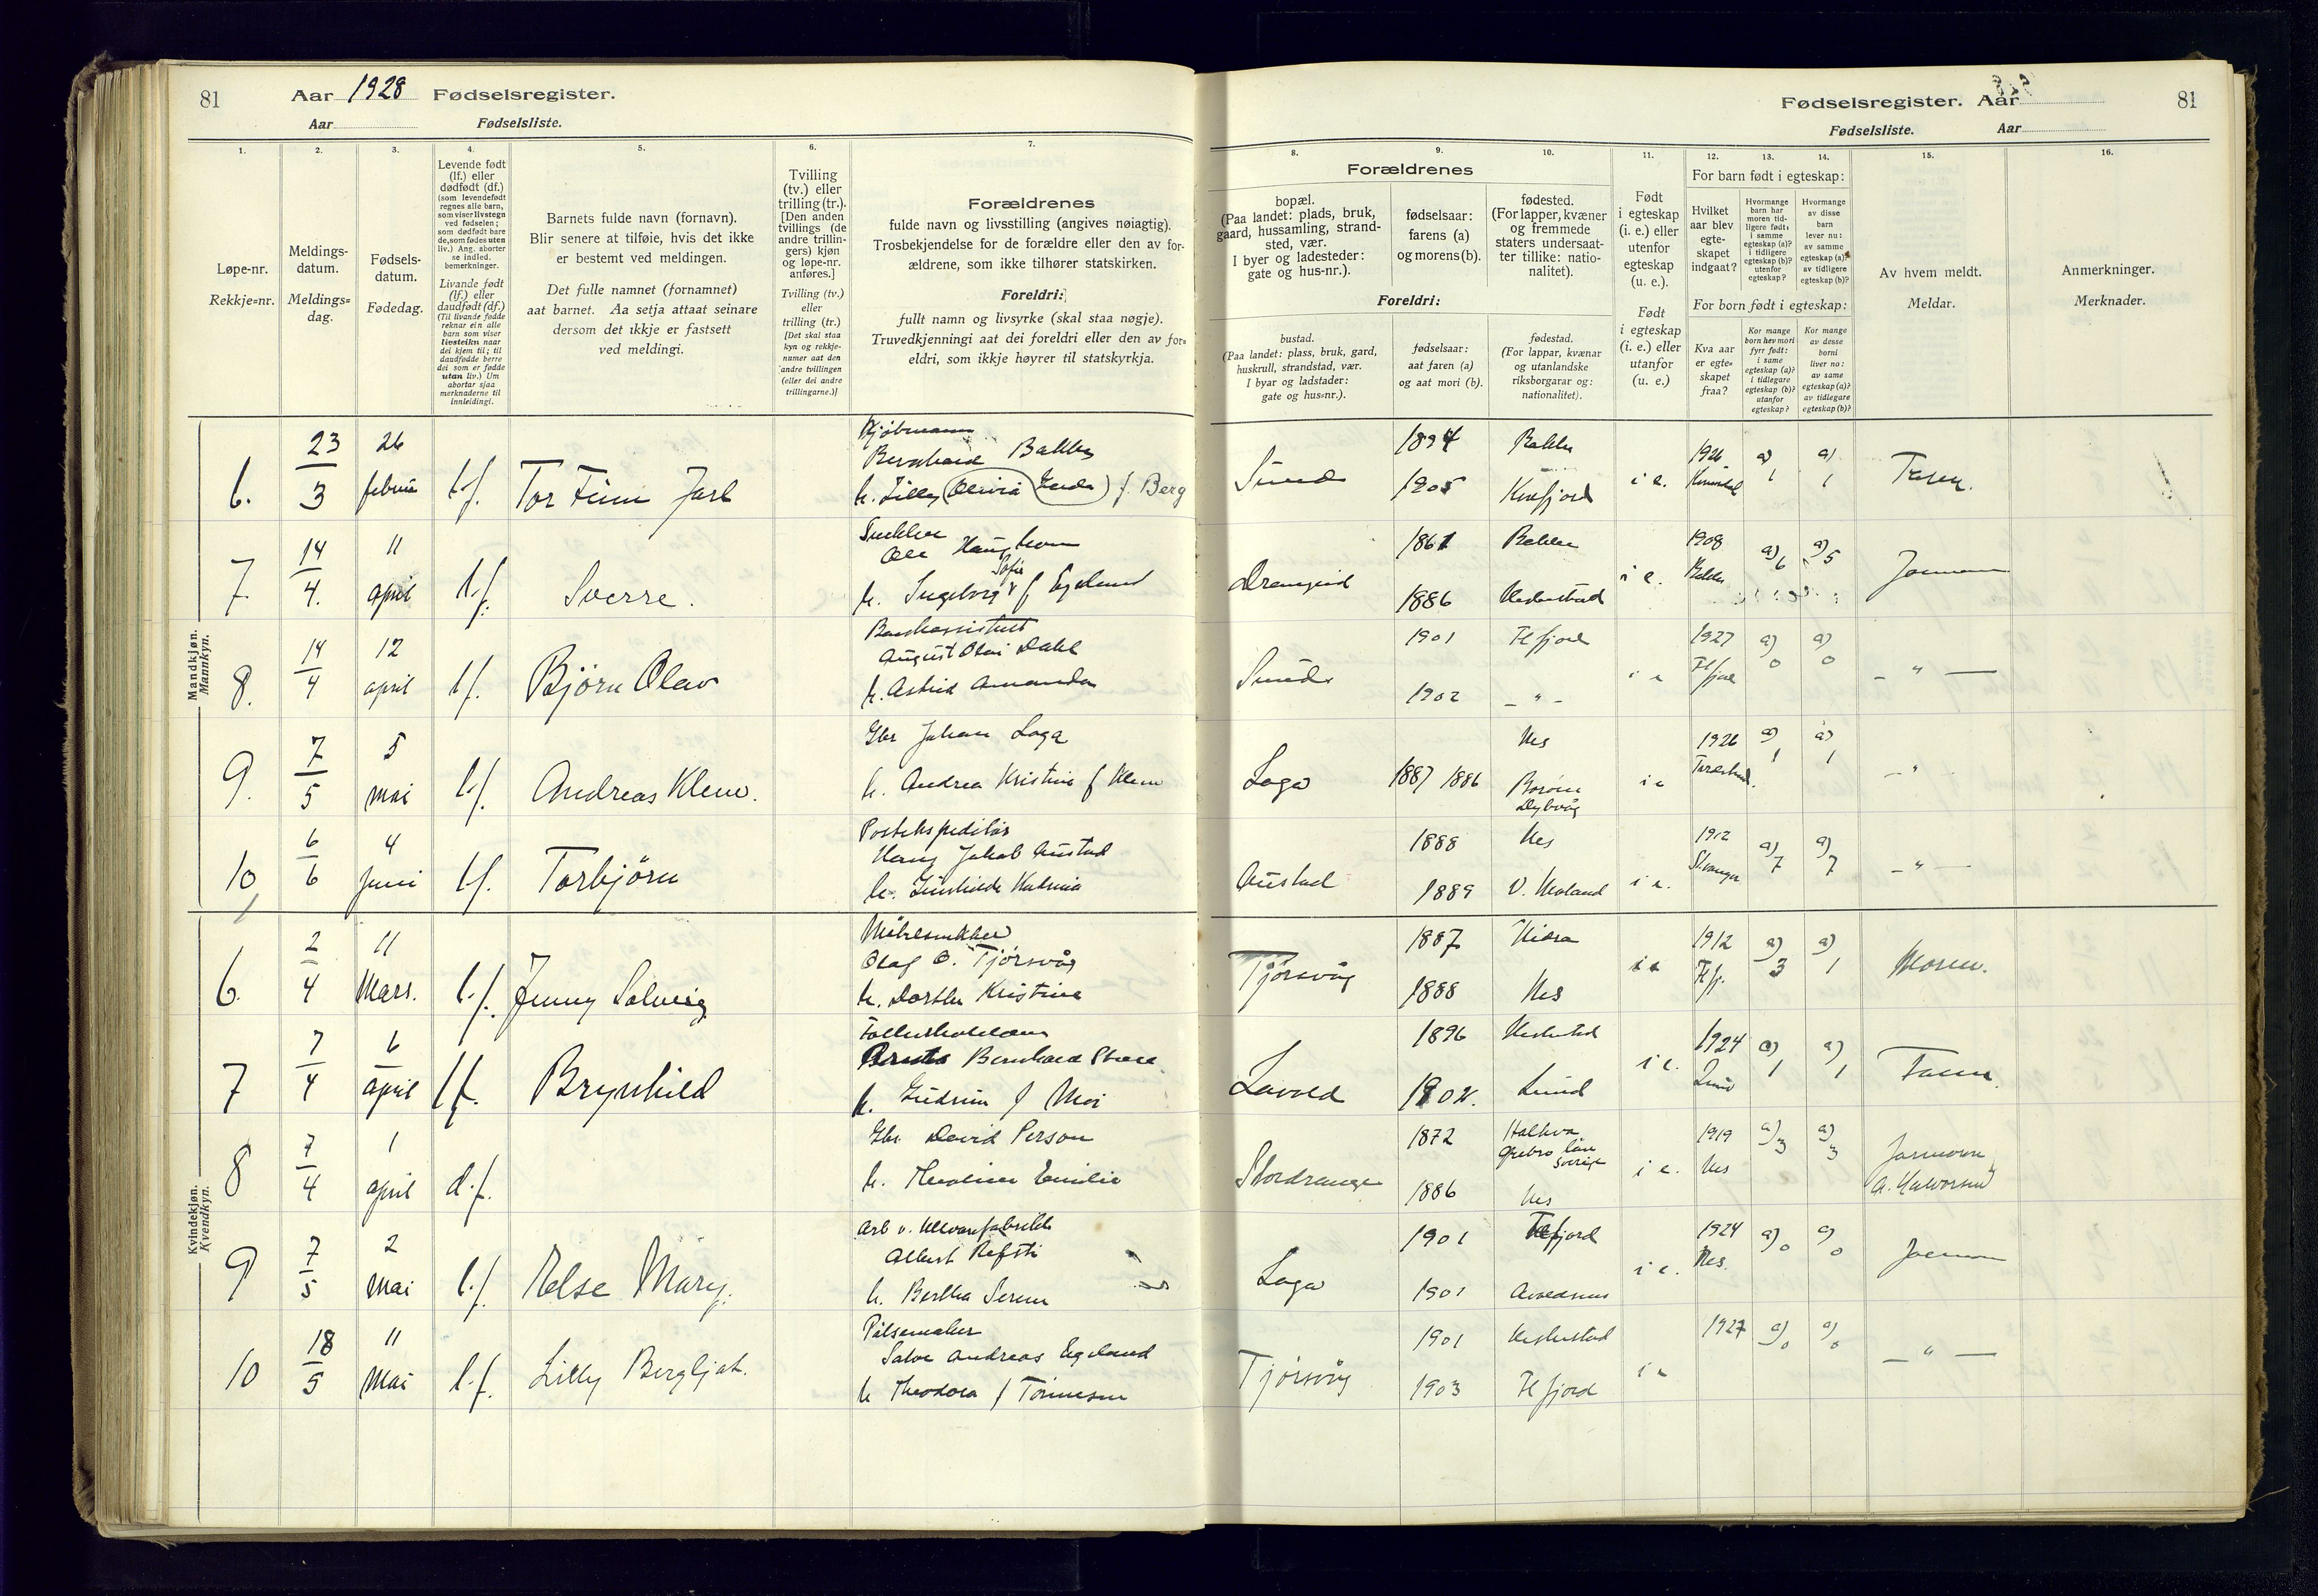 81
Aar 1928 Fødselsregister.
Aar Fødselsliste.
Fødselsregister. Aar
81
Fødselsliste. Aar
1.
Løpe-nr.
Rekkje=nr.
2.
Meldings-
datum.
Meldings=
dag.
3.
Fødsels-
datum.
Fødedag.
4.
Levende født
(lf.) eller
dødfødt (df.)
(som levendefødt
regnes alle barn,
som viser livstegn
ved fødselen;
som dødfødt bare
de, som fødes uten
liv.) Ang. aborter
se indled.
bemerkninger.
Livande født
(lf.) eller
daudfødt (df.)
(Til livande fødde
reknar ein alle
barn som viser
livsteikn naar
dei kjem til; til
daudfødde berre
dei som er fødde
utan liv.) Um
abortar sjaa
merknaderne til
innleidingi.
5.
Barnets fulde navn (fornavn).
Blir senere at tilføie, hvis det ikke
er bestemt ved meldingen.
Det fulle namnet (fornamnet)
aat barnet. Aa setja attaat seinare
dersom det ikkje er fastsett
ved meldingi.
6.
Tvilling
(tv.) eller
trilling (tr.).
[Den anden
tvillings (de
andre trillin-
gers) kjøn
og løpe-nr.
anføres.]
Tvilling (tv.)
eller
trilling (tr.)
[Det skal staa
kyn og rekkje-
numer aat den
andre tvillingen
(eller dei andre
trillingarne.)]
7.
Forældrenes
fulde navn og livsstilling (angives nøiagtig).
Trosbekjendelse for de forældre eller den av for-
ældrene, som ikke tilhører statskirken.
Foreldri:
fullt namn og livsyrke (skal staa nøgje).
Truvedkjenningi aat dei foreldri eller den av for=
eldri, som ikkje høyrer til statskyrkja.
8.
Forældrenes
bopæl.
(Paa landet: plads, bruk,
gaard, hussamling, strand-
sted, vær.
I byer og ladesteder:
gate og hus-nr.).
Foreldri:
bustad.
(Paa landet: plass, bruk, gard,
huskrull, strandstad, vær.
I byar og ladstader:
gate og hus=nr.).
9.
fødselsaar:
farens (a)
og morens (b).
fødselsaar:
aat faren (a)
og aat mori (b).
10.
fødested.
(For lapper, kvæner
og fremmede
staters undersaat-
ter tillike: natio-
nalitet).
fødestad.
(For lappar, kvænar
og utanlandske
riksborgarar og:
nationalitet).
11.
Født
i egteskap
(i. e.) eller
utenfor
egteskap
(u. e.).
Født
i egteskap
(i. e.) eller
utanfor
(u. e.)
12.
13.
14.
For barn født i egteskap:
Hvilket
aar blev
egte-
skapet
indgaat?
Hvormange
barn har
moren tid-
ligere født:
i samme
egteskap (a)?
i tidligere
egteskap (b)?
utenfor
egteskap?
Hvormange
av disse
barn
lever nu:
av samme
egteskap (a)?
av tidligere
egteskap (b)?
For born født i egteskap:
Kva aar
er egte-
skapet
fraa?
Kor mange
born hev mori
fyrr født:
i same
egteskap (a)?
i tidlegare
egteskap (b)?
utanfor
egteskap?
Kor mange
av desse
borni
liver no:
av same
egteskap (a)?
av tidlegare
egteskap (b)?
15.
Av hvem meldt.
Meldar.
16.
Anmerkninger.
Merknader.
Mandkjøn.
Mannkyn.
6. 23/3 26 l.f. Tor Finn Jarl
Bernhard Bakke
h. Lilly (Olivia) f. Berg
Sunde 1894 Bakke
1905 Kvæfjord
i e. 1926 a) 1 a) 1
7. 14/4. 11 april l.f. Sverre.
Ole Haughom
h. Ingeborg Sofie f Egeland
Drangeid 1861 Bakke
1886 i e. 1908 Bakke a) 6 a) 5 Jormor
8. 14/4 12 april l.f. Björn Olav
Bankassistent
August Olai Dahl
h. Astrid Amanda
Sunde 1901 Flfjord
1902 – " –
i e 1927 Flfjord a) 0 a) 0 – " –
9. 7/5 5 mai l.f. Andreas Klem.
Gbr Johan Loga
h. Andrea Kristine f Klem
Loga 1887 / 1886 Nes
Dybvåg
i e 1926 a) 1 a) 1 – " –
10 6/6 4 Juni l.f. Torbjörn
Postekspeditør
Hans Jakob Austad
Austad 1888 Nes
1889 i e. 1912 a) 7 a) 7 – " –
Kvindekjøn.
Kvendkyn.
6. 2/4 11 Mars. l.f. Jenny Solveig
Olaf O. Tjörsvåg
h. Dorthea Kristine
Tjörsvåg 1887 Hidra
1888 Nes
i e 1912 Flfj. a) 3 a) 1 Moren.
7 7/4 6 april l.f. Brynhild
Bernhard
h. Gudrun f Moi
Lavold 1896
1902. Lund
i e. 1924 Lund a) 1 a) 1 Faren.
8 7/4 1 april d.f.
Gbr David Person
h. Theoline Emilie
Stordrange 1872 Örebro län Sverige
1886 Nes
i e. 1919 Nes a) 3 a) 3 Jormoren
A. Halvorsen
9 7/5 2 Mai l.f. Else Mary.
Arb v. Ullvarefabrikk
Albert Refsti
h. Bertha Serene
Loga 1901 Flfjord
1901 i e. 1924 Nes. a) 0 a) 0 Jormor
10 18/5 11 Mai l.f. Lilly Bergljot.
Pölsemaker
Salve Andreas Egeland
h Theodora f Tönnesen
Tjörsvåg 1901
1903 Flfjord
i e 1927 a) 0 a) 0 – " –